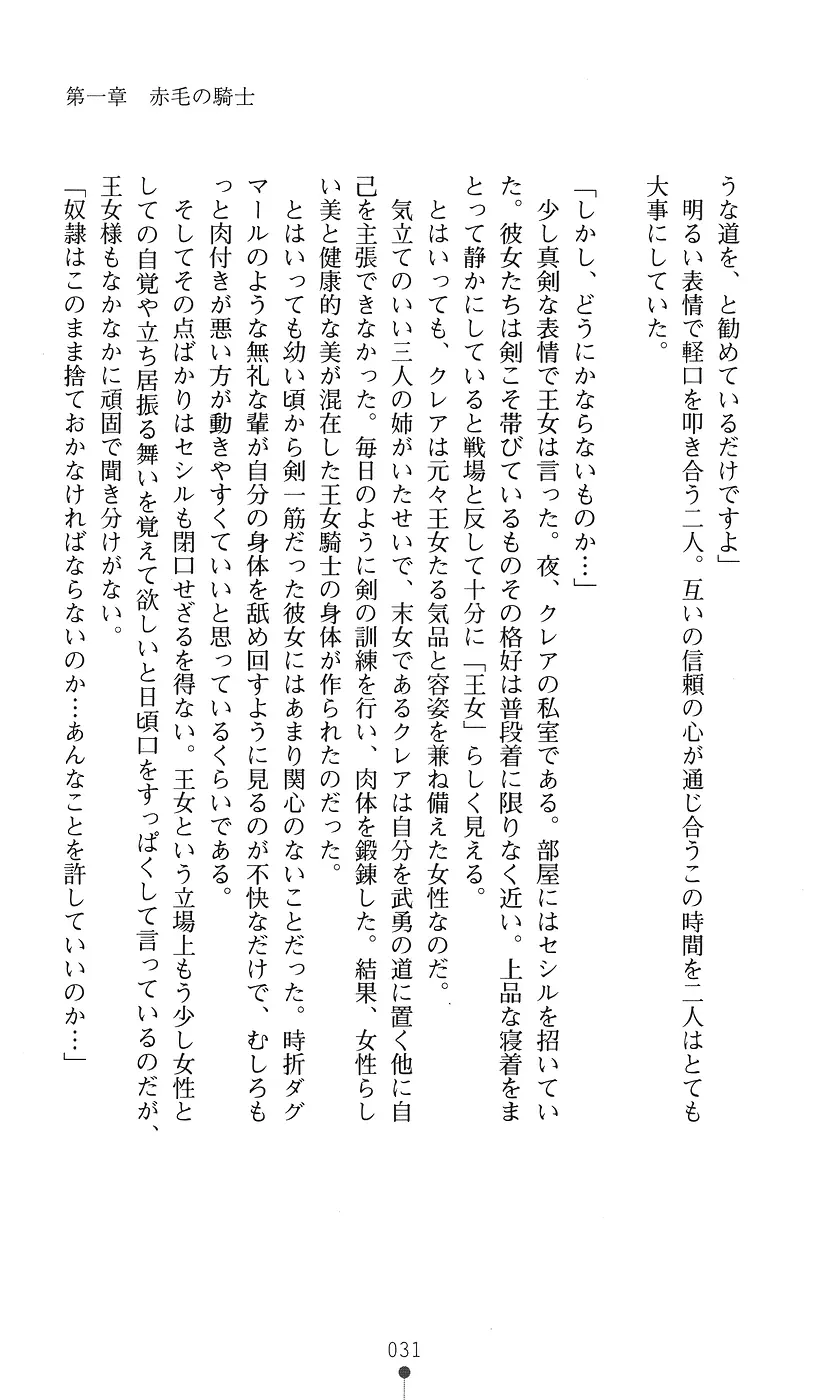 第一章　赤毛の騎士
うな道を、と勧めているだけですよ」
　明るい表情で軽口を叩き合う二人。互いの信頼の心が通じ合うこの時間を二人はとても
大事にしていた。
「しかし、どうにかならないものか…」
　少し真剣な表情で王女は言った。夜、クレアの私室である。部屋にはセシルを招いてい
た。彼女たちは剣こそ帯びているものその格好は普段着に限りなく近い。上品な寝着をま
とって静かにしていると戦場と反して十分に「王女」らしく見える。
　とはいっても、クレアは元々王女たる気品と容姿を兼ね備えた女性なのだ。
　気立てのいい三人の姉がいたせいで、末女であるクレアは自分を武勇の道に置く他に自
己を主張できなかった。毎日のように剣の訓練を行い、肉体を鍛錬した。結果、女性らし
い美と健康的な美が混在した王女騎士の身体が作られたのだった。
　とはいっても幼い頃から剣一筋だった彼女にはあまり関心のないことだった。時折ダグ
マールのような無礼な輩が自分の身体を舐め回すように見るのが不快なだけで、むしろも
っと肉付きが悪い方が動きやすくていいと思っているくらいである。
　そしてその点ばかりはセシルも閉口せざるを得ない。王女という立場上もう少し女性と
しての自覚や立ち居振る舞いを覚えて欲しいと日頃口をすっぱくして言っているのだが、
王女様もなかなかに頑固で聞き分けがない。
「奴隷はこのまま捨ておかなければならないのか…あんなことを許していいのか…」
031